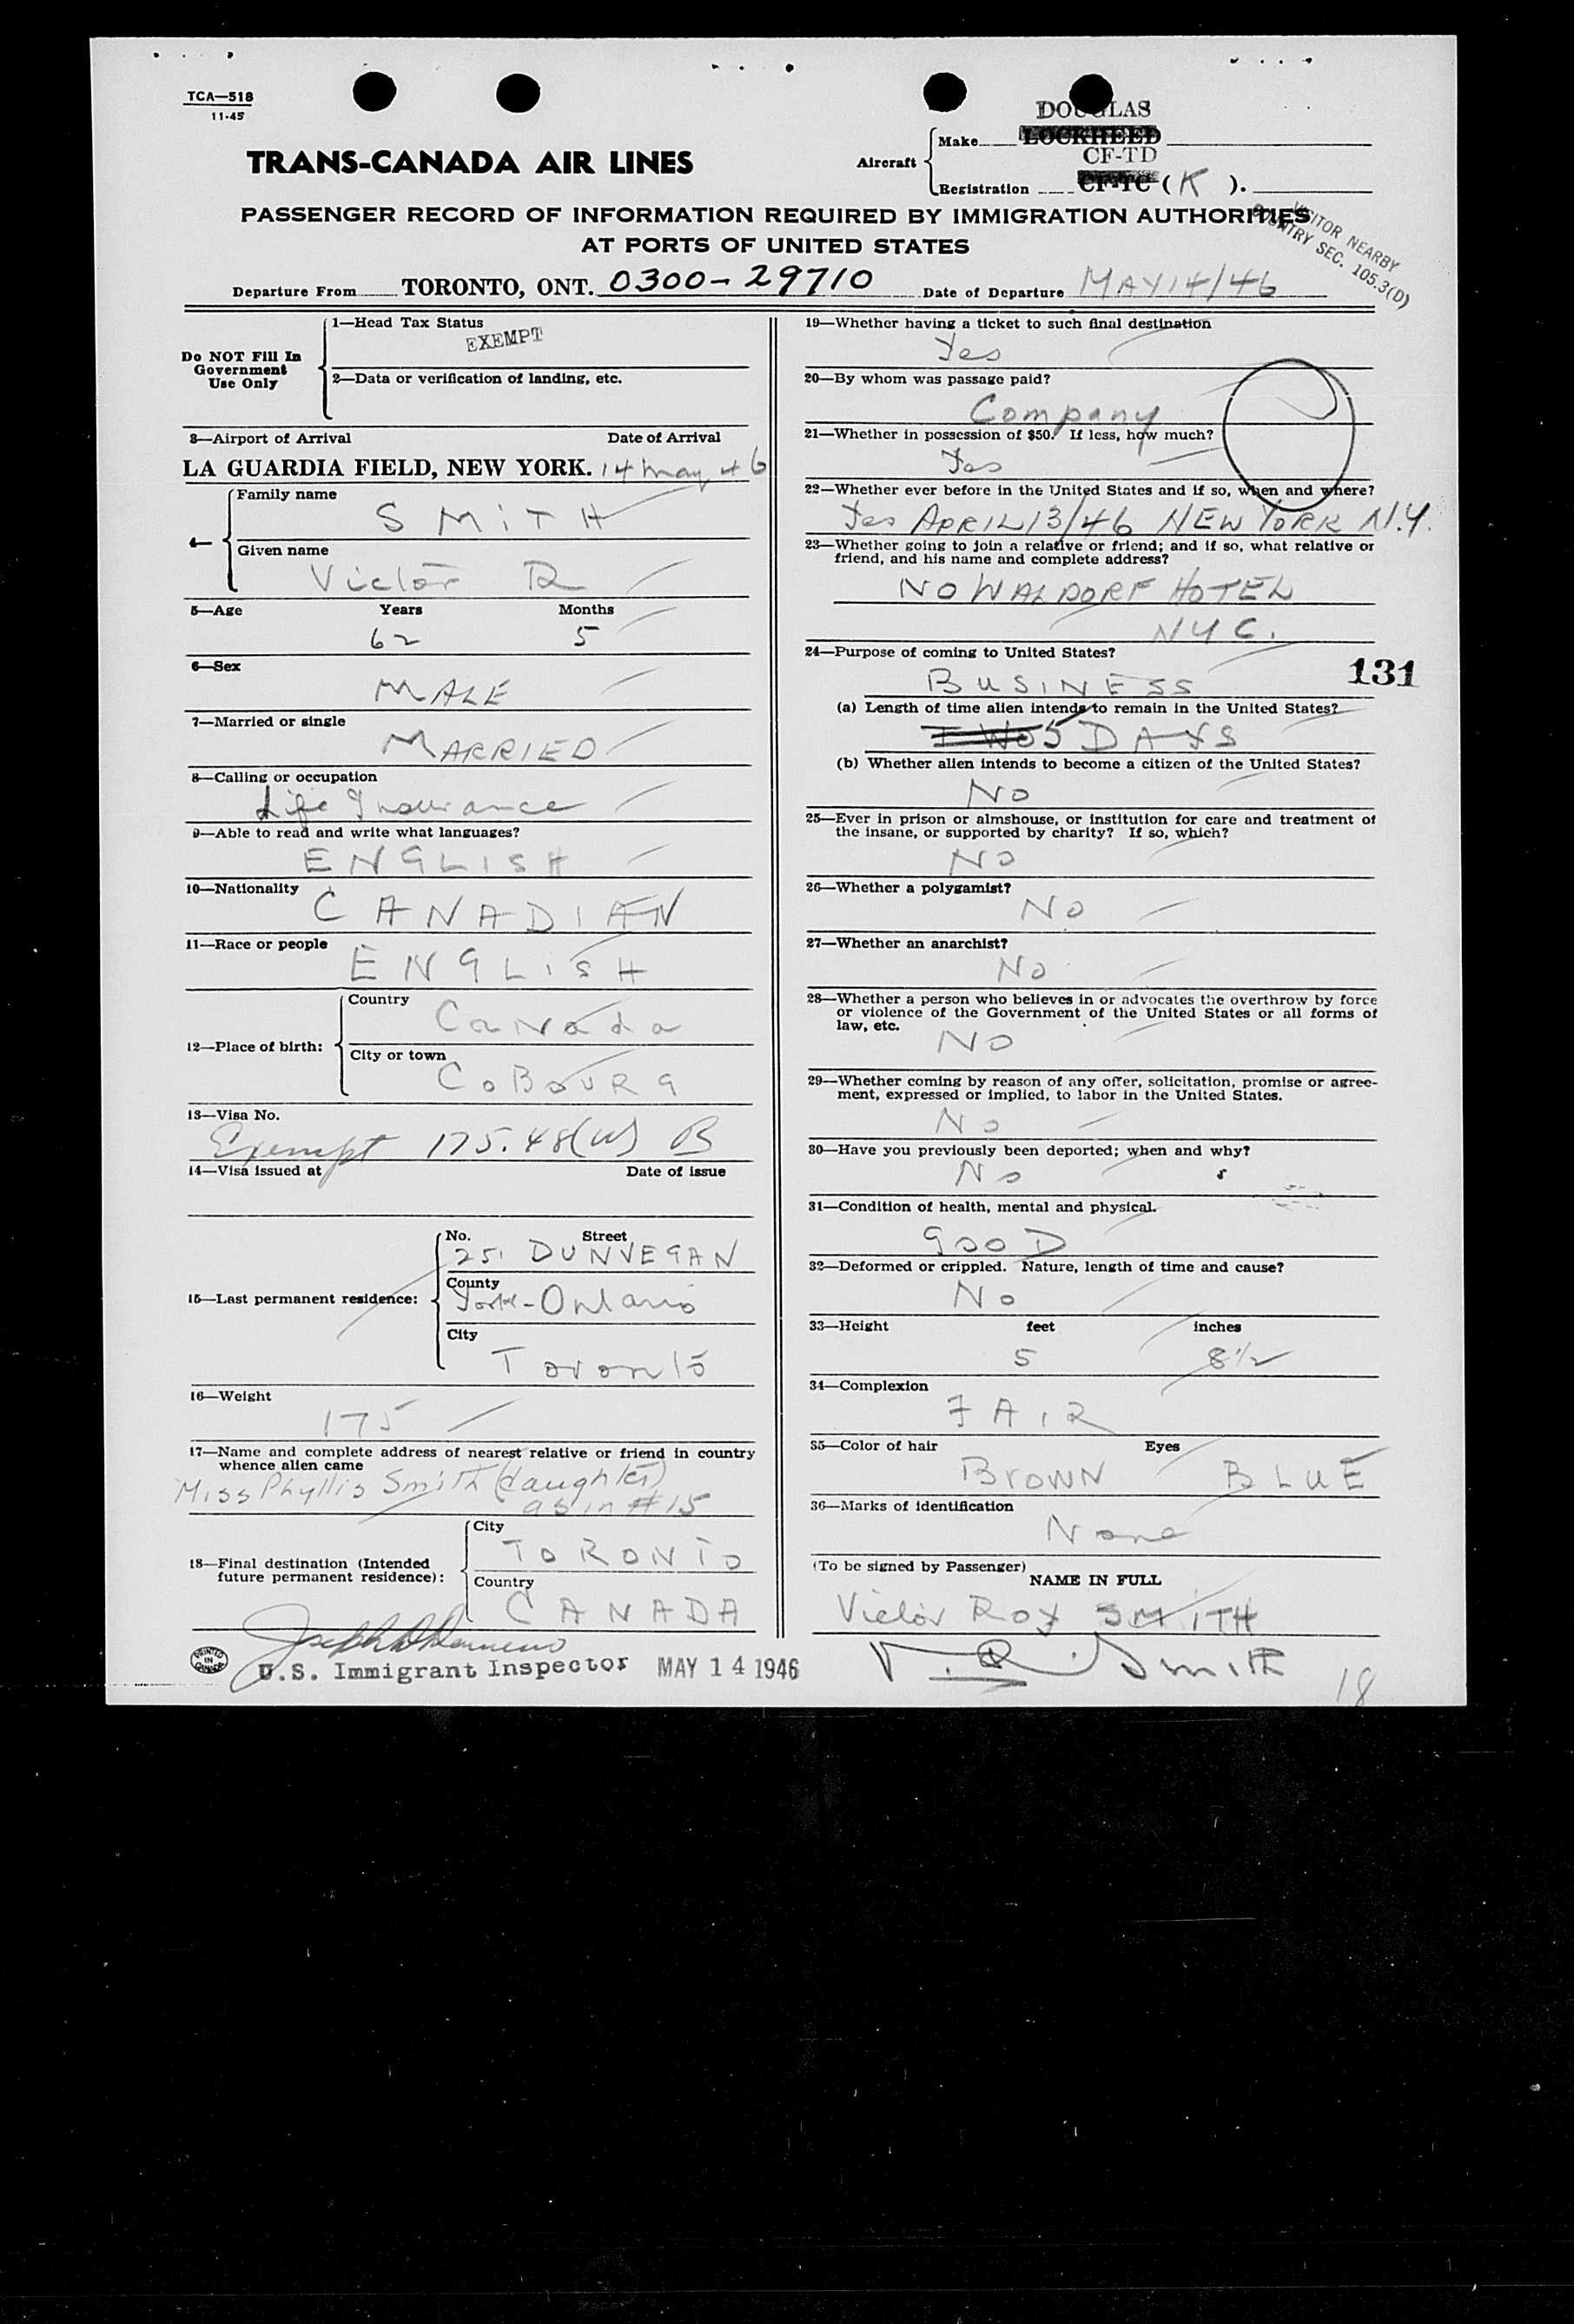 TCA—518
11-45
DOUGLAS
TRANS-CANADA AIR LINES
Aircraft
Make LOCKHEED
CF-TD
Registration CF-TC (K).
PASSENGER RECORD OF INFORMATION REQUIRED BY IMMIGRATION AUTHORITIES
AT PORTS OF UNITED STATES
VISITOR NEARBY
COUNTRY SEC. 105.3(D)
Departure From TORONTO, ONT. 0300-29710 Date of Departure MAY 14/46
Do NOT Fill In
Government
Use Only
1—Head Tax Status
EXEMPT
2—Data or verification of landing, etc.
3—Airport of Arrival Date of Arrival
LA GUARDIA FIELD, NEW YORK. 14 May 46
4—
Family name
SMITH
Given name
Victor R
5—Age Years Months
62 5
6—Sex
MALE
7—Married or single
MARRIED
8—Calling or occupation
Life Insurance
9—Able to read and write what languages?
ENGLISH
10—Nationality
CANADIAN
11—Race or people
ENGLISH
12—Place of birth:
Country
Canada
City or town
COBOURG
13—Visa No.
Exempt 175.48(W) B
14—Visa issued at Date of issue
15—Last permanent residence:
No. Street
251 DUNVEGAN
County
York-Ontario
City
Toronto
16—Weight
175
17—Name and complete address of nearest relative or friend in country
whence alien came
Miss Phyllis Smith (daughter)
as in #15
18—Final destination (Intended
future permanent residence):
City
TORONTO
Country
CANADA
U.S. Immigrant Inspector MAY 14 1946
PRINTED
IN
CANADA
19—Whether having a ticket to such final destination
Yes
20—By whom was passage paid?
Company
21—Whether in possession of $50. If less, how much?
Yes
22—Whether ever before in the United States and if so, when and where?
Yes APRIL 13/46 NEW YORK N.Y.
23—Whether going to join a relative or friend; and if so, what relative or
friend, and his name and complete address?
NO WALDORF HOTEL
NYC.
24—Purpose of coming to United States?
131
BUSINESS
(a) Length of time alien intends to remain in the United States?
TWO 5 DAYS
(b) Whether alien intends to become a citizen of the United States?
No
25—Ever in prison or almshouse, or institution for care and treatment of
the insane, or supported by charity? If so, which?
NO
26—Whether a polygamist?
No
27—Whether an anarchist?
No
28—Whether a person who believes in or advocates the overthrow by force
or violence of the Government of the United States or all forms of
law, etc.
NO
29—Whether coming by reason of any offer, solicitation, promise or agree-
ment, expressed or implied, to labor in the United States.
No
30—Have you previously been deported; when and why?
No
31—Condition of health, mental and physical.
GOOD
32—Deformed or crippled. Nature, length of time and cause?
No
33—Height feet inches
5 8½
34—Complexion
FAIR
35—Color of hair Eyes
Brown BLUE
36—Marks of identification
None
(To be signed by Passenger)
NAME IN FULL
Victor Roy SMITH
V. R. Smith
18